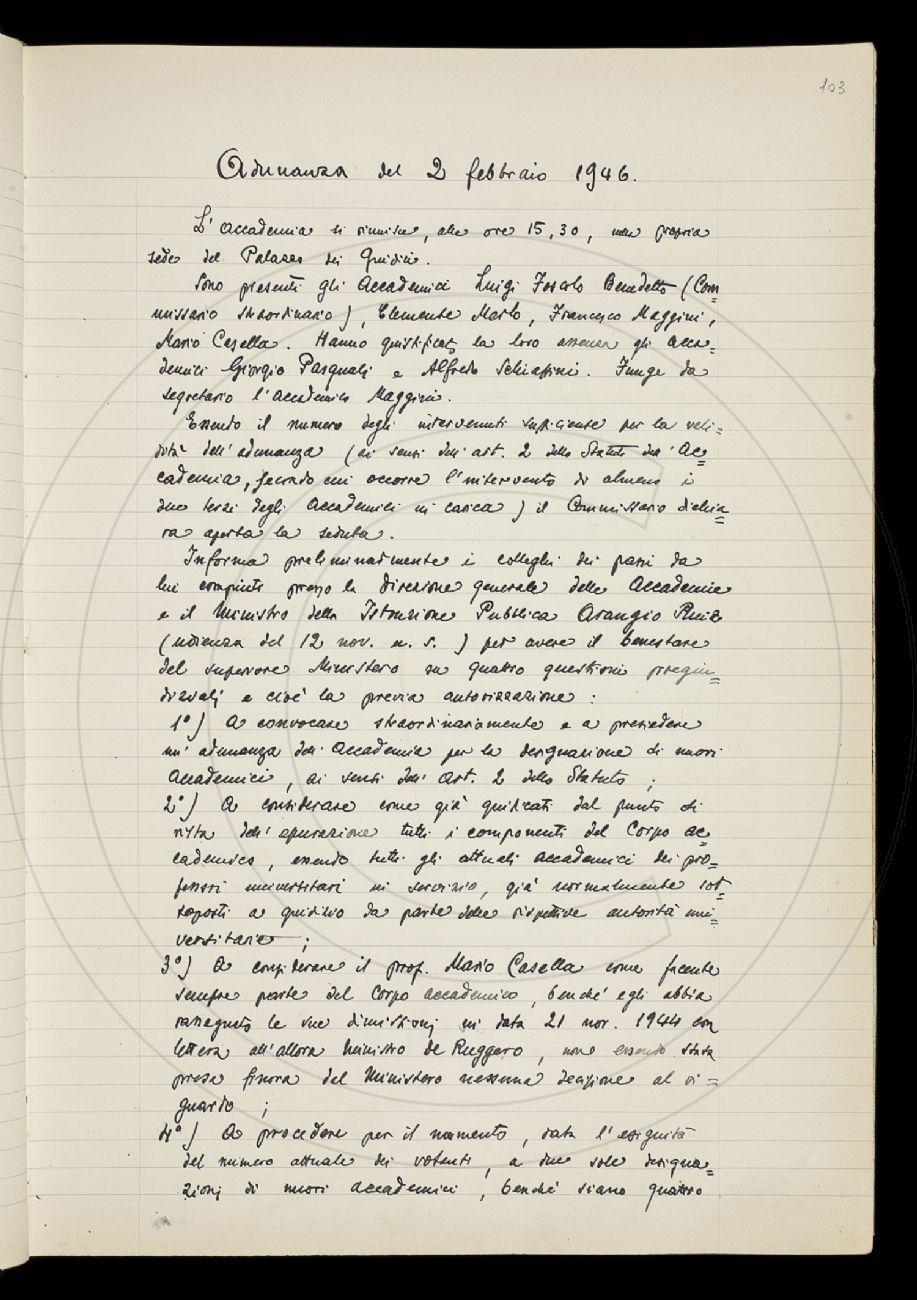 103
Adunanza del 2 febbraio 1946.
L'Accademia si riunisce, alle ore 15,30, nella propria
sede del Palazzo dei Giudici.
Sono presenti gli Accademici Luigi Foscolo Benedetto (Com=
missario straordinario), Clemente Merlo, Francesco Maggini,
Mario Casella. Hanno giustificato la loro assenza gli acca=
demici Giorgio Pasquali e Alfredo Schiaffini. Funge da
segretario l'Accademico Maggini.
Essendo il numero degli intervenuti sufficiente per la vali=
dità dell'adunanza (ai sensi dell'art. 2 dello Statuto dell'Ac=
cademia, secondo cui occorre l'intervento di almeno i
due terzi degli Accademici in carica) il Commissario dichia=
ra aperta la seduta.
Informa preliminarmente i colleghi dei passi da
lui compiuti presso la Direzione generale delle Accademie
e il Ministro della Istruzione Pubblica Arangio Ruiz
(udienza del 12 nov. u. s.) per avere il benestare
del superiore Ministero su quattro questioni pregiu=
diziali e cioè la previa autorizzazione:
1°) A convocare straordinariamente e a presiedere
un'adunanza dell'Accademia per la designazione di nuovi
Accademici, ai sensi dell'Art. 2 dello Statuto;
2°) A considerare come già giudicati dal punto di
vista dell'epurazione tutti i componenti del Corpo ac=
cademico, essendo tutti gli attuali accademici dei pro=
fessori universitari in servizio, già normalmente sot=
toposti a giudizio da parte delle rispettive autorità uni=
versitarie;
3°) A considerare il prof. Mario Casella come facente
sempre parte del Corpo accademico, benché egli abbia
rassegnato le sue dimissioni in data 21 nov. 1944 con
lettera all'allora Ministro de Ruggero, non essendo stata
presa finora dal Ministero nessuna decisione al ri=
guardo;
4°) A procedere per il momento, data l'esiguità
del numero attuale dei votanti, a due sole designa=
zioni di nuovi accademici, benché siano quattro